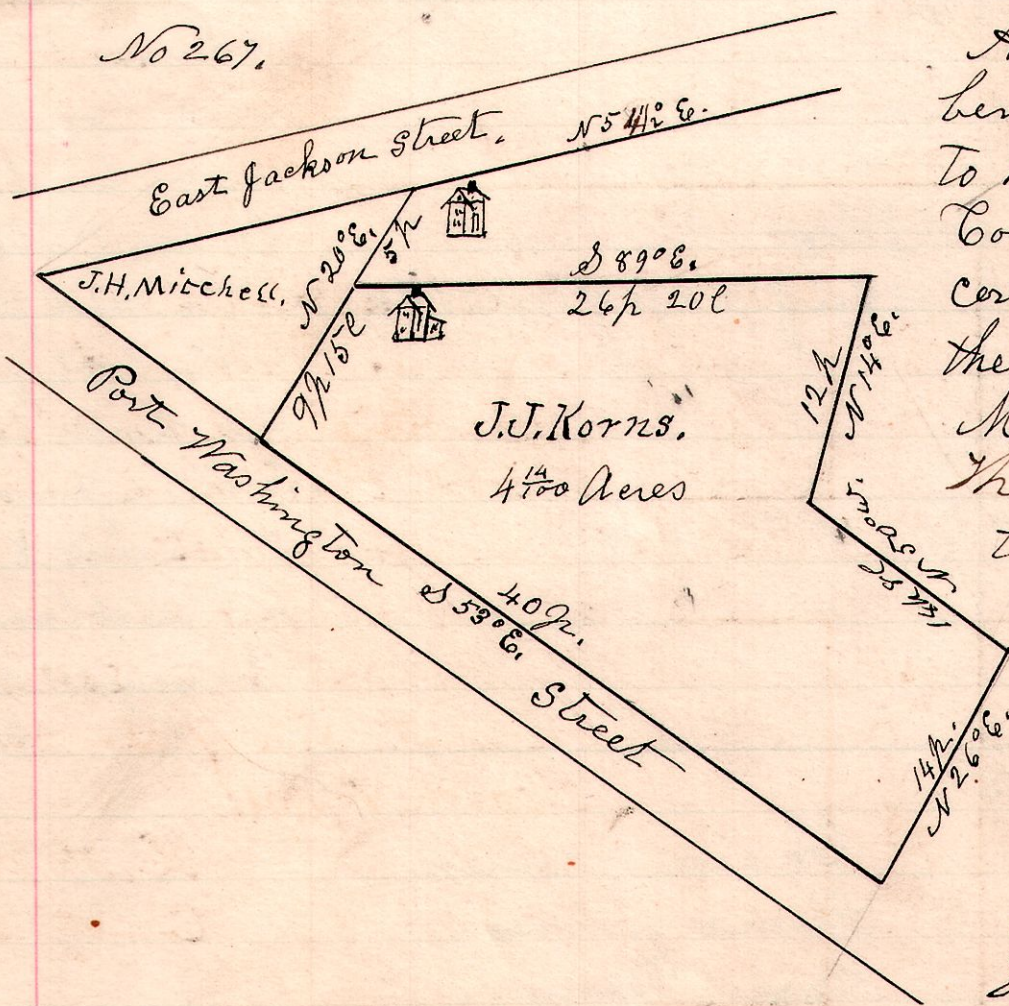 No 267.
East Jackson Street.
N 54½° E.
J.H. Mitchell.
N 20° E.
5 p
9p 15l
S 89° E.
26p 20l
12 p
N 14° E.
J.J. Korns.
4 14/100 Acres
Port Washington Street
40 p.
S 53° E.
14 p.
N 26° E.
ber
To
Co
cer
the
M
Th
t